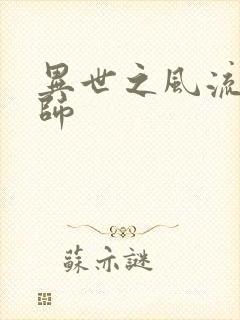 異世之風流
師
蘇亦謎